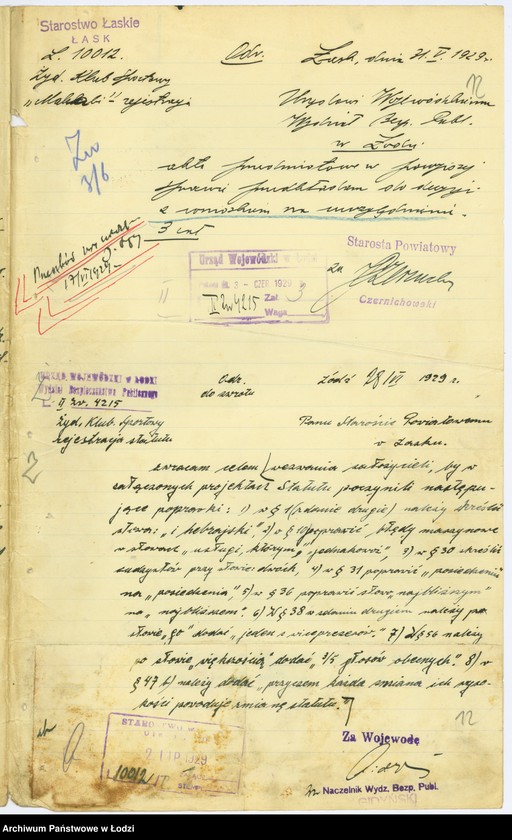 Starostwo Łaskie
ŁASK
L. 10012.
Odr.
Łask, dnia 31 V. 1929 r.
12
Żyd. Klub Sportowy
"Makkabi" rejestracja
Urzędowi Wojewódzkiemu
Wydział Bezp. Publ.
w Łodzi
Zw
3/6
akta przedmiotowe w powyższej
sprawie przedkładam do decyzji
z wnioskiem na uwzględnienie.
3 zał
17/VI 1929
Urząd Wojewódzki w Łodzi
3 - CZER. 1929
II Zw 4215
Zał. 3
Waga
Starosta Powiatowy
za
Czernichowski
II
URZĄD WOJEWÓDZKI W ŁODZI
Wydział Bezpieczeństwa Publicznego
L. II Zw. 4215
Odr.
do zwrotu
Łódź 28/VI 1929 r.
Żyd. Klub. Sportowy
rejestracja statutu
Panu Staroście Powiatowemu
w Łasku.
zwracam celem wezwania założycieli, by w
załączonych projektach Statutu poczynili następu-
jące poprawki: 1) w § 1 (zdanie drugie) należy skreślić
słowa: "i hebrajski", 2) w § 10 poprawić błędy maszynowe
w słowach "usługi, którym," "jednakowoż" 3) w § 30 skreślić
cudzysłów przy słowie: dwóch, 4) w § 31 poprawić "posiedzenia"
na "posiedzenia," 5) w § 36 poprawić słowo "najbliższym"
na "najbliższem". 6) W § 38 w zdaniu drugiem należy po
słowie "go" dodać "jeden z viceprezesów." 7) W § 56 należy
po słowie "większością" dodać "3/5 głosów obecnych." 8) w
§ 47 b) należy dodać "przyczem każda zmiana ich wyso-
kości powoduje zmianę statutu."
12
STAROSTWO
2 LIP 1929
L. 10012/II
Za Wojewodę
Naczelnik Wydz. Bezp. Publ.
Archiwum Państwowe w Łodzi